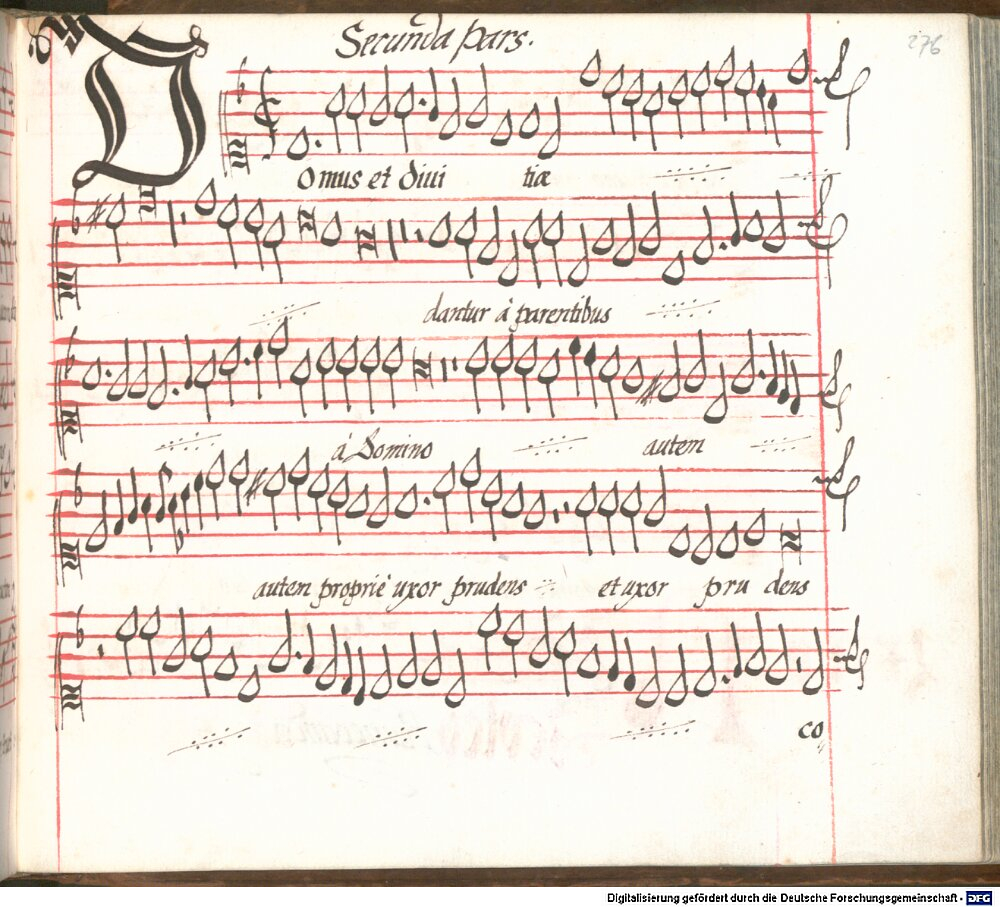 Secunda pars.
276
Domus et divitiæ
dantur à parentibus
à Domino autem
autem propriè uxor prudens et uxor pru dens
co
Digitalisierung gefördert durch die Deutsche Forschungsgemeinschaft - DFG